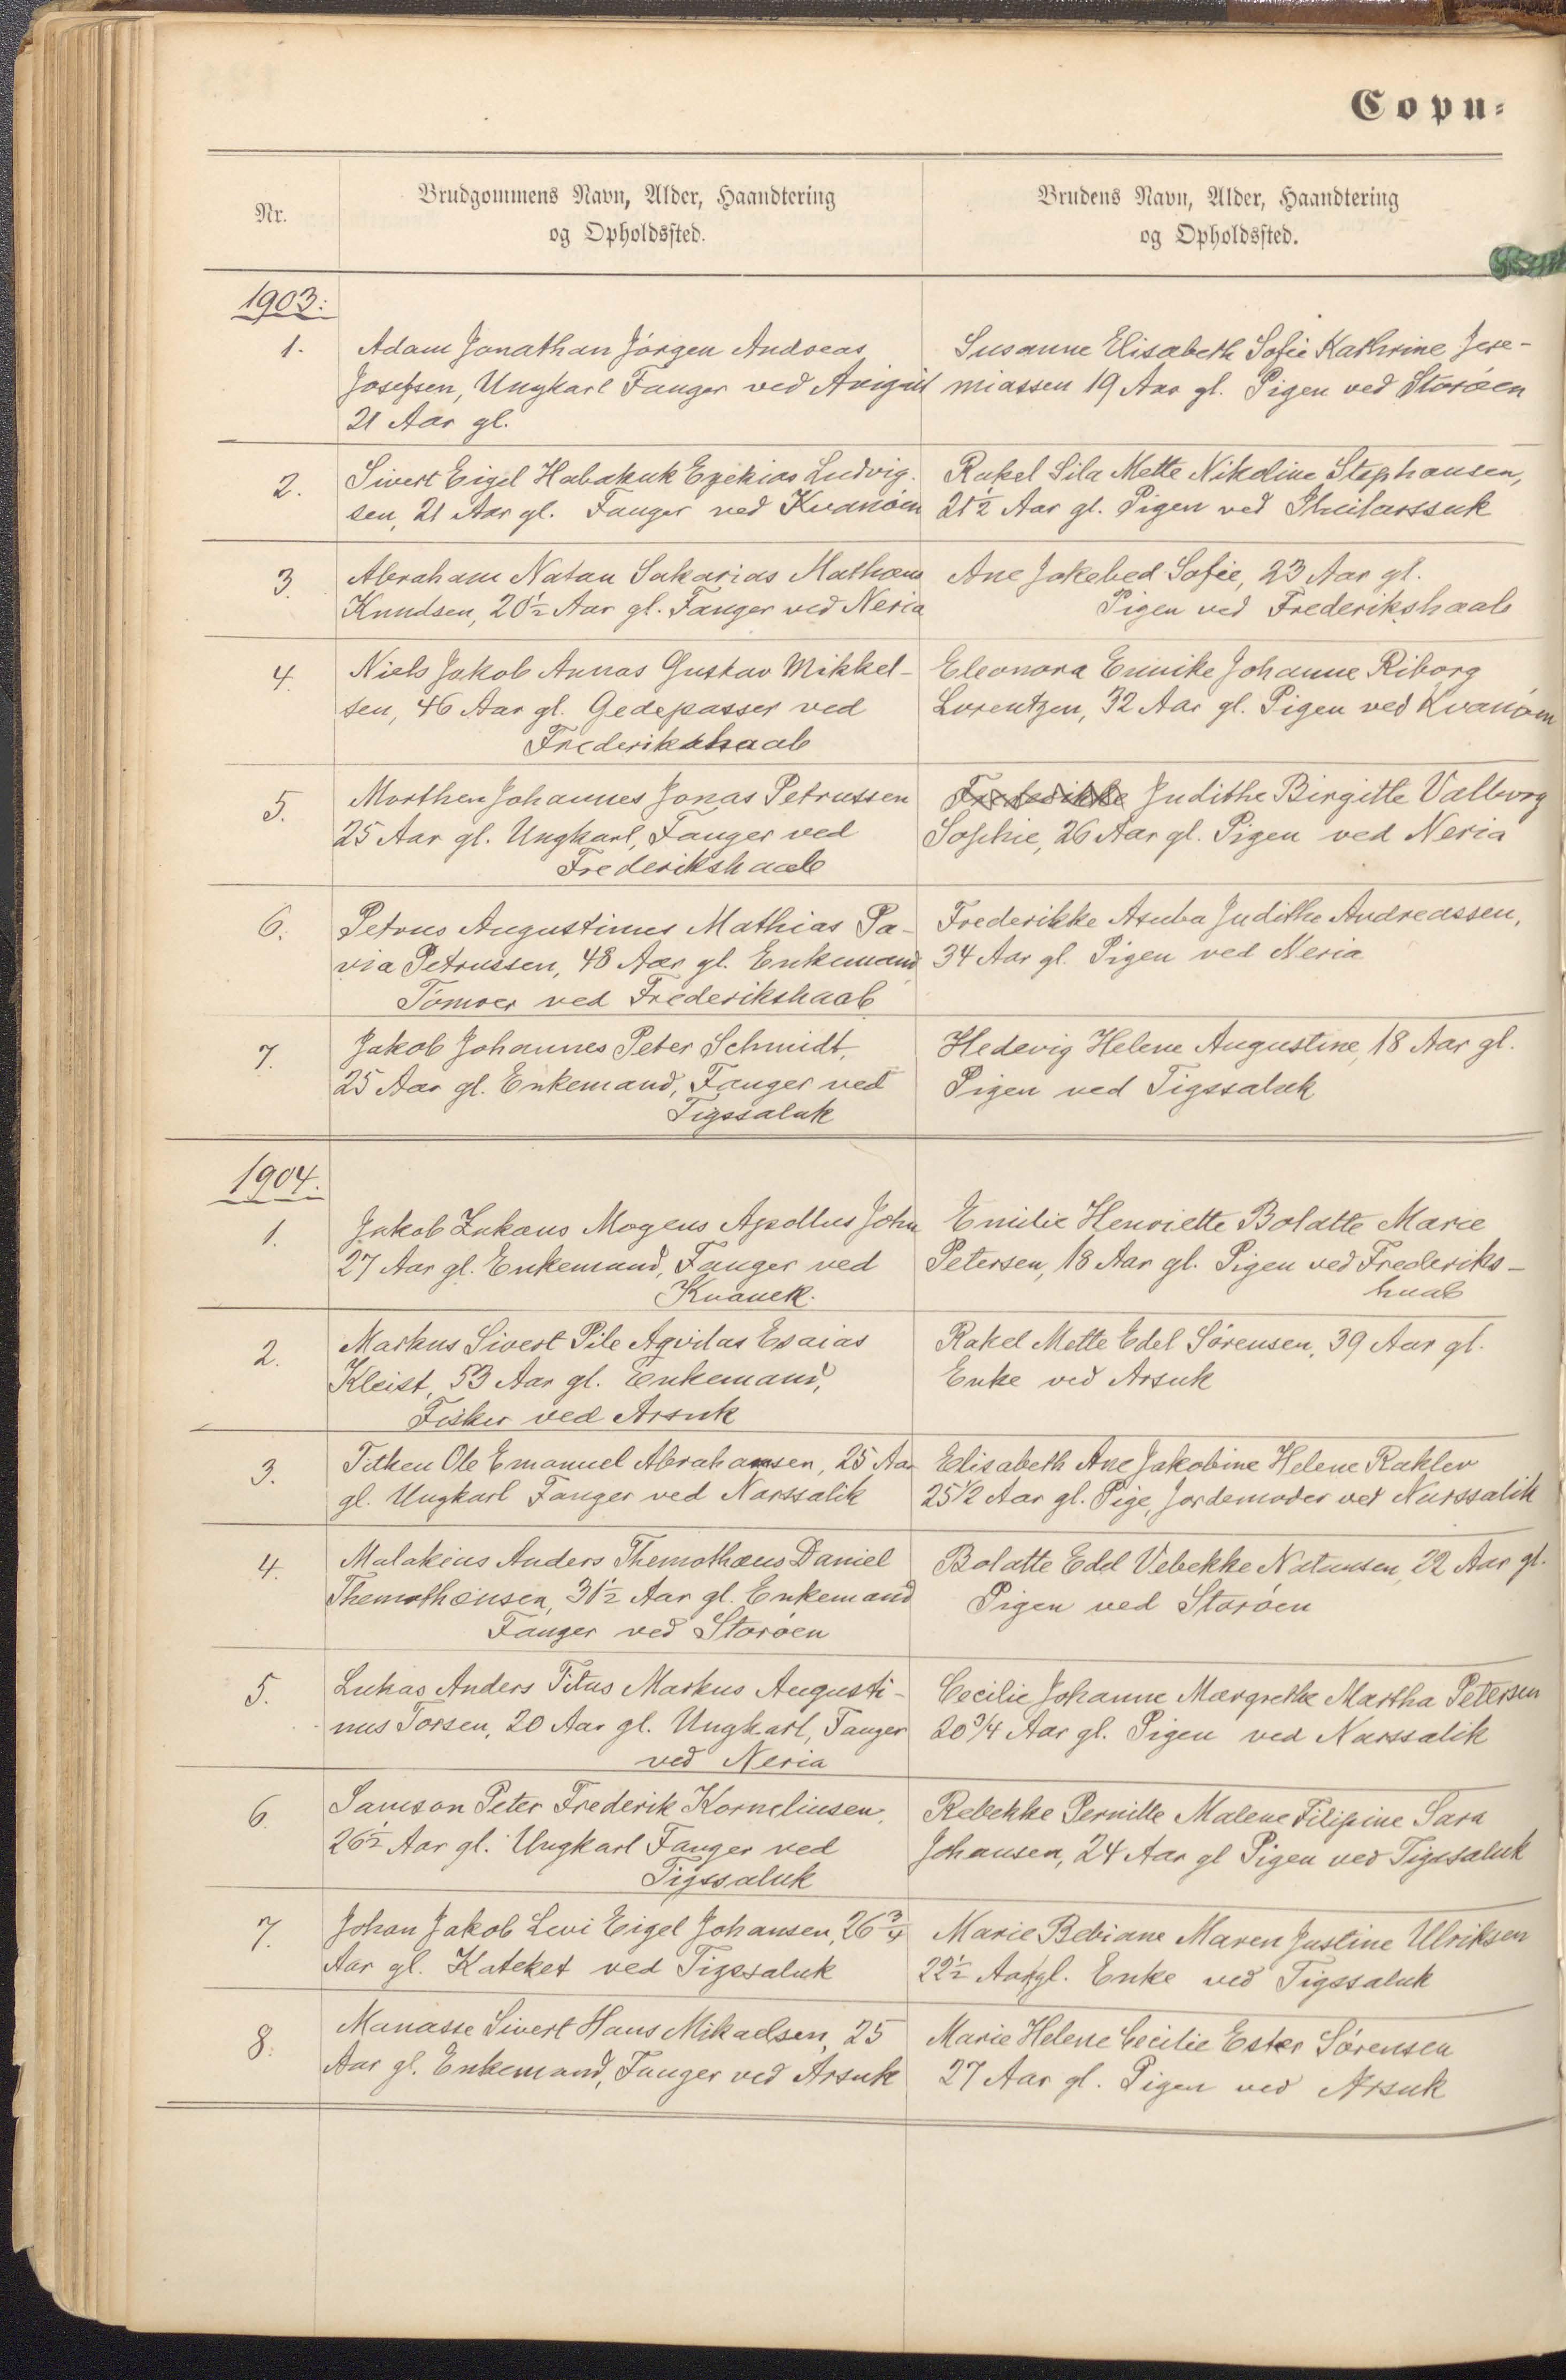 Copu=
Nr.
Brudgommens Navn, Alder, Haandtering
og Opholdssted.
Brudens Navn, Alder, Haandtering
og Opholdssted.
1903:
1.
Adam Jonathan Jørgen Andreas
Josefsen, Ungkarl Fanger ved Avigait
21 Aar gl.
Susanne Elisabeth Sofie Kathrine Jere-
miassen 19 Aar gl. Pigen ved Storøen
2.
Sivert Eigil Habakuk Ezekias Ludvig-
sen, 21 Aar gl. Fanger ved Kvanøen
Rakel Sila Mette Nikoline Stephansen,
21½ Aar gl. Pigen ved
3.
Abraham Natan Sakarias Mathæus
Knudsen, 20½ Aar gl. Fanger ved Neria
Ane Jakebed Sofie, 23 Aar gl.
Pigen ved Frederikshaab
4.
Niels Jakob Annas Gustav Mikkel-
sen, 46 Aar gl. Gedepasser ved
Frederikshaab
Eleonora Ennike Johanne Riborg
Lorentzen, 32 Aar gl. Pigen ved Kvanøen
5.
Morthen Johannes Jonas Petrussen
25 Aar gl. Ungkarl, Fanger ved
Frederikshaab
Frederikke Judithe Birgitte Valborg
Sophie, 26 Aar gl. Pigen ved Neria
6.
Petrus Augustinus Mathias Pa-
via Petrussen, 48 Aar gl. Enkemand
Tømrer ved Frederikshaab
Frederikke Asuba Judithe Andreassen,
34 Aar gl. Pigen ved Neria
7.
Jakob Johannes Peter Schmidt,
25 Aar gl. Enkemand, Fanger ved
Tigssaluk
Hedevig Helene Augustine, 18 Aar gl.
Pigen ved Tigssaluk
1904.
1.
Jakob Lukas Mogens Apollus John
27 Aar gl. Enkemand, Fanger ved
Kvanek.
Emilie Henriette Bolatte Marie
Petersen, 18 Aar gl. Pigen ved Frederiks-
haab
2.
Markus Sivert Pile Aqvilas Esaias
Kleist, 53 Aar gl. Enkemand,
Fisker ved Arsuk
Rakel Mette Edel Sørensen, 39 Aar gl.
Enke ved Arsuk
3.
Titken Ole Emanuel Abrahamsen, 25 Aar
gl. Ungkarl Fanger ved Narssalik
Elisabeth Ane Jakobine Helene Raklev
25 1/2 Aar gl. Pige, Jordemoder ved Narssalik
4.
Malakias Anders Themothæus Daniel
Themothæusen, 31½ Aar gl. Enkemand
Fanger ved Storøen
Bolatte Edel Vebekke Natansen, 22 Aar gl.
Pigen ved Storøen
5.
Lukas Anders Titus Markus Augusti-
nus Torsen, 20 Aar gl. Ungkarl, Fanger
ved Neria
Cecilie Johanne Margrethe Martha Petersen
20 3/4 Aar gl. Pigen ved Narssalik
6.
Samson Peter Frederik Korneliusen,
26½ Aar gl. Ungkarl Fanger ved
Tigssaluk
Rebekke Pernille Malene Filipine Sara
Johansen, 24 Aar gl Pigen ved Tigssaluk
7.
Johan Jakob Levi Eigel Johansen, 26 3/4
Aar gl. Kateket ved Tigssaluk
Marie Bebiane Maren Justine Ulriksen
22½ Aar gl. Enke ved Tigssaluk
8.
Manasse Sivert Hans Mikaelsen, 25
Aar gl. Enkemand, Fanger ved Arsuk
Marie Helene Cecilie Ester Sørensen
27 Aar gl. Pigen ved Arsuk